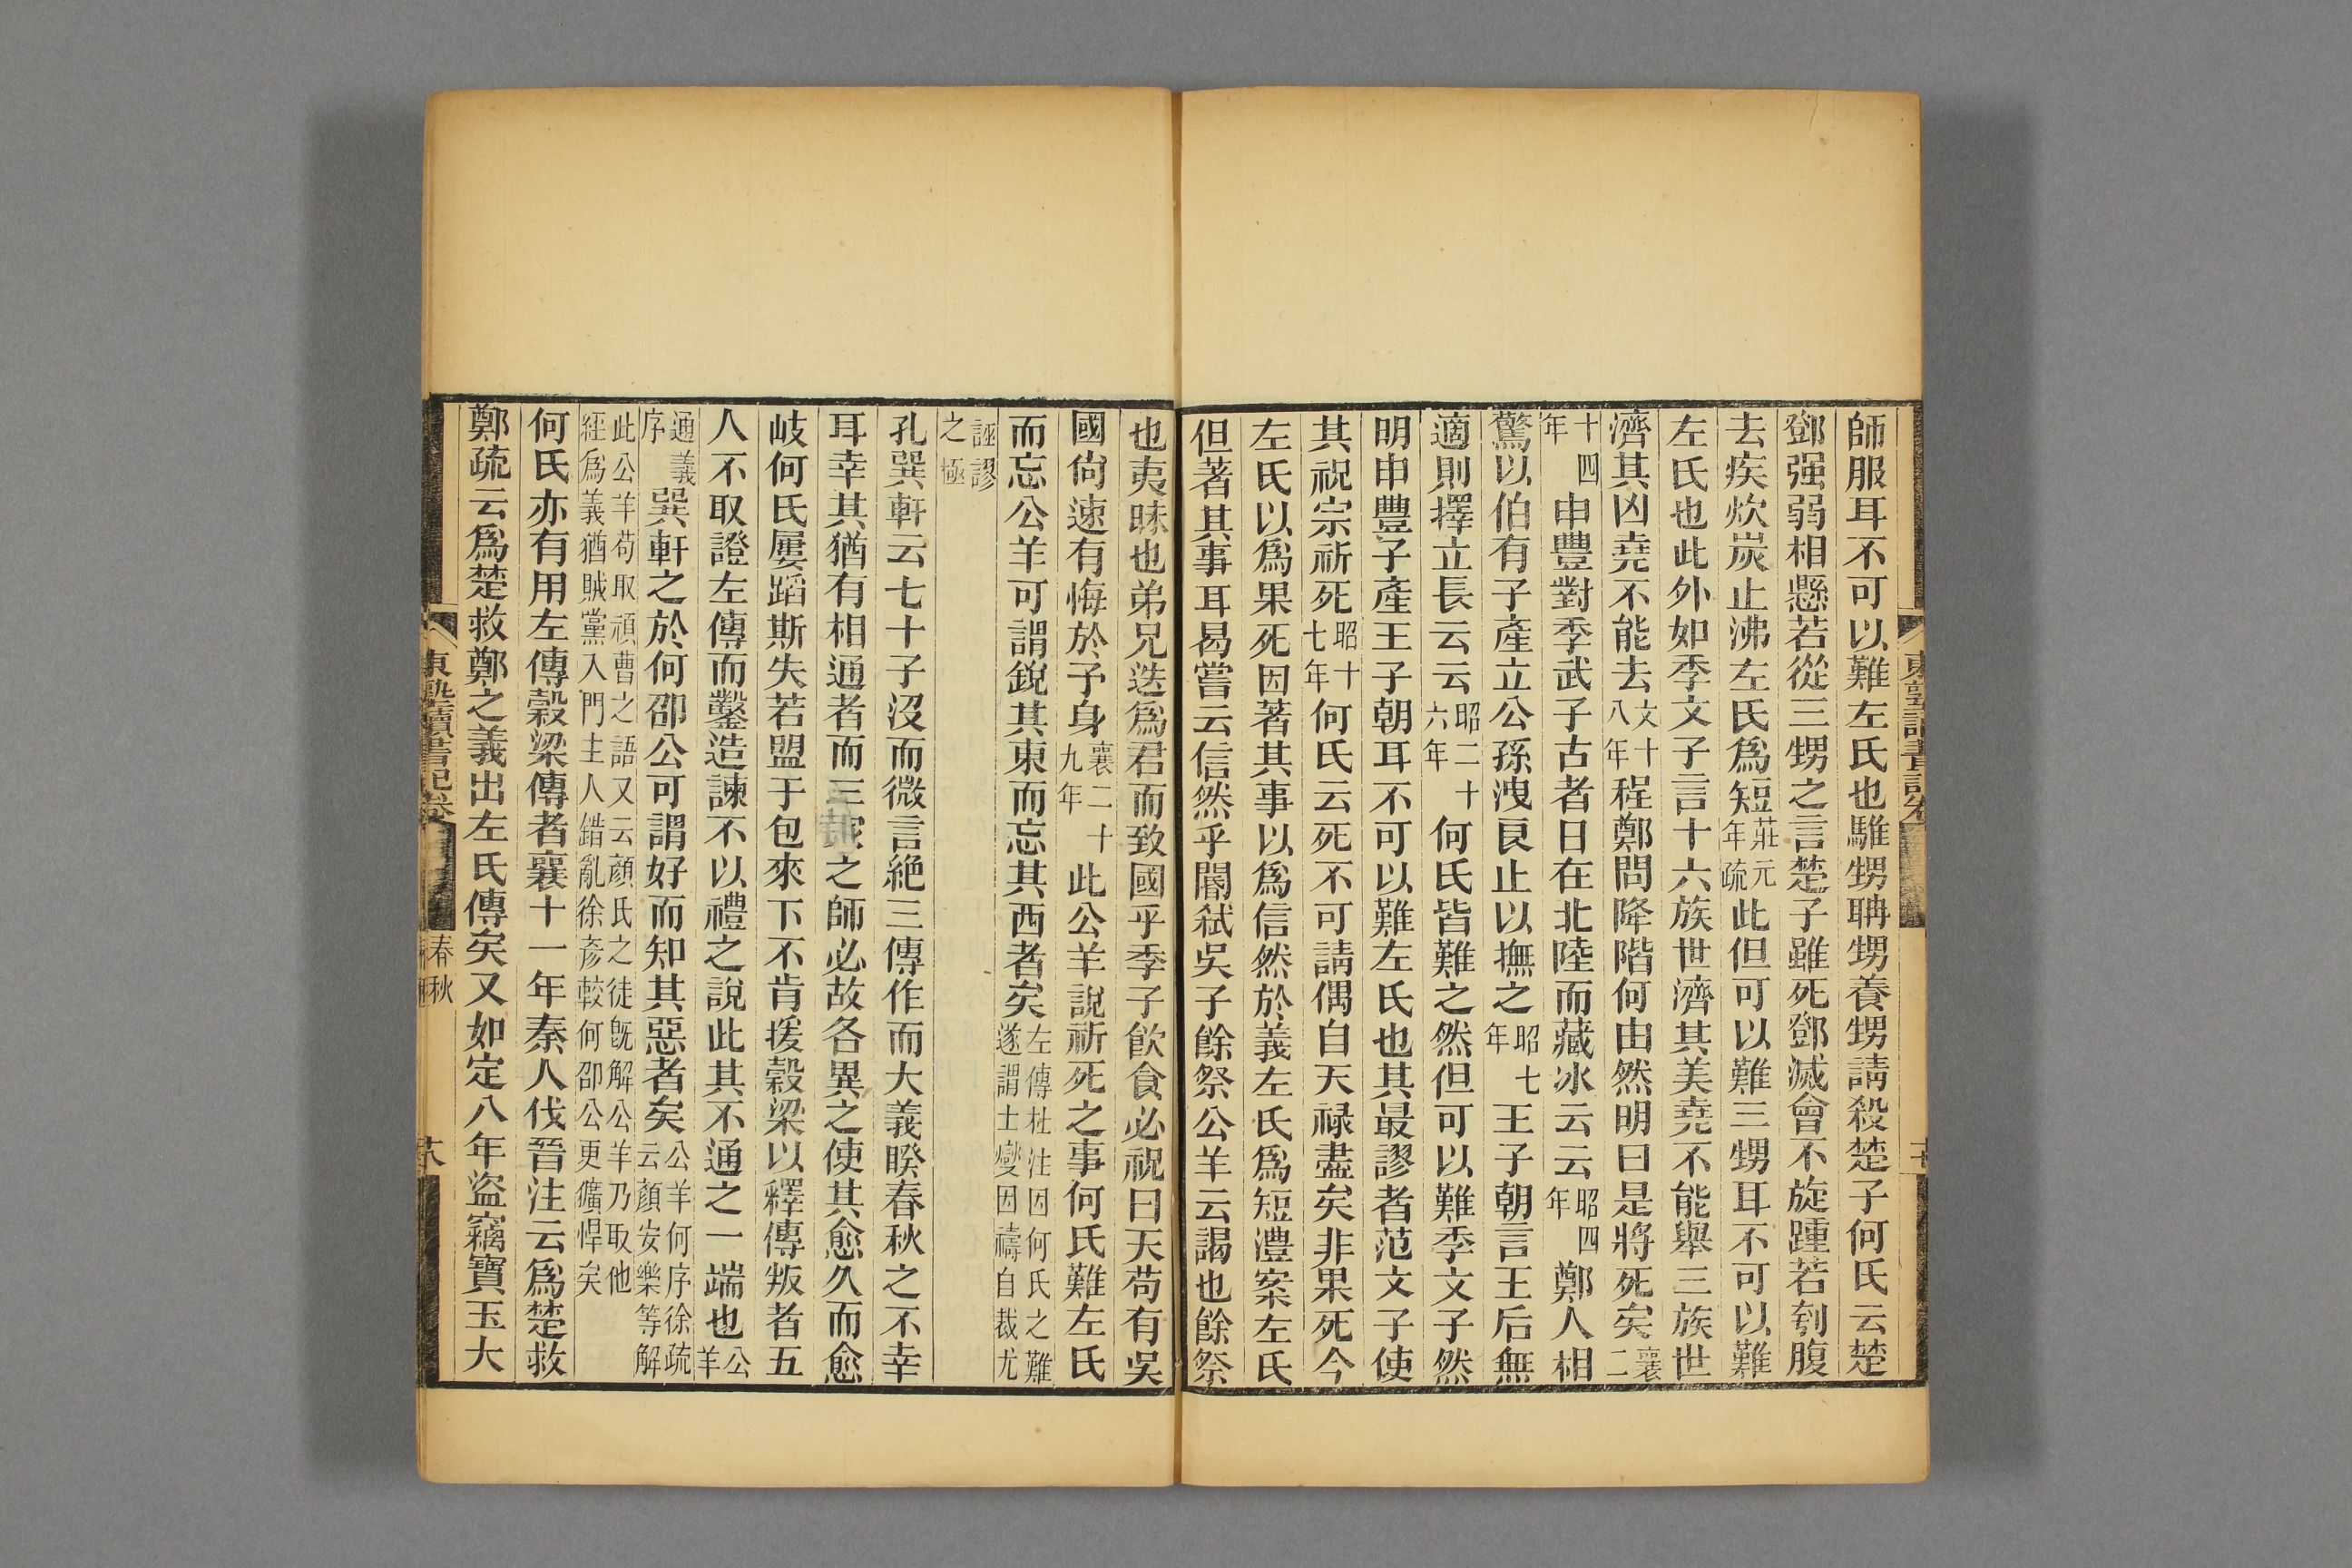 師服耳不可以難左氏也騅甥聃甥養甥請殺楚子何氏云楚
鄧强弱相懸若從三甥之言楚子雖死鄧滅會不旋踵若刳腹
去疾炊炭止沸左氏爲短莊元年疏此但可以難三甥耳不可以難
左氏也此外如季文子言十六族世濟其美堯不能舉三族世
濟其凶堯不能去文十八年程鄭問降階何由然明曰是將死矣襄二
十四年申豐對季武子古者日在北陸而藏冰云云昭四年鄭人相
驚以伯有子產立公孫洩良止以撫之昭七年王子朝言王后無
適則擇立長云云昭二十六年何氏皆難之然但可以難季文子然
明申豐子產王子朝耳不可以難左氏也其最謬者范文子使
其祝宗祈死昭十七年何氏云死不可請偶自天祿盡矣非果死今
左氏以爲果死因著其事以爲信然於義左氏爲短澧案左氏
但著其事耳曷嘗云信然乎閽弑吳子餘祭公羊云謁也餘祭
也夷昧也弟兄迭爲君而致國乎季子飲食必祝曰天苟有吳
國尙速有悔於予身襄二十九年此公羊說祈死之事何氏難左氏
而忘公羊可謂銳其東而忘其西者矣左傳杜注因何氏之難遂謂士燮因禱自裁尤
誣謬之極
孔巽軒云七十子沒而微言絕三傳作而大義睽春秋之不幸
耳幸其猶有相通者而三家之師必故各異之使其愈久而愈
岐何氏屢蹈斯失若盟于包來下不肯援穀梁以釋傳叛者五
人不取證左傳而鑿造諫不以禮之說此其不通之一端也公羊
通義序巽軒之於何邵公可謂好而知其惡者矣公羊何序徐疏云顏安樂等解
此公羊苟取頑曹之語又云顏氏之徒旣解公羊乃取他經爲義猶賊黨入門主人錯亂徐彥較何邵公更獷悍矣
何氏亦有用左傳穀梁傳者襄十一年秦人伐晉注云爲楚救
鄭疏云爲楚救鄭之義出左氏傳矣又如定八年盜竊寶玉大
東塾讀書記卷
春秋